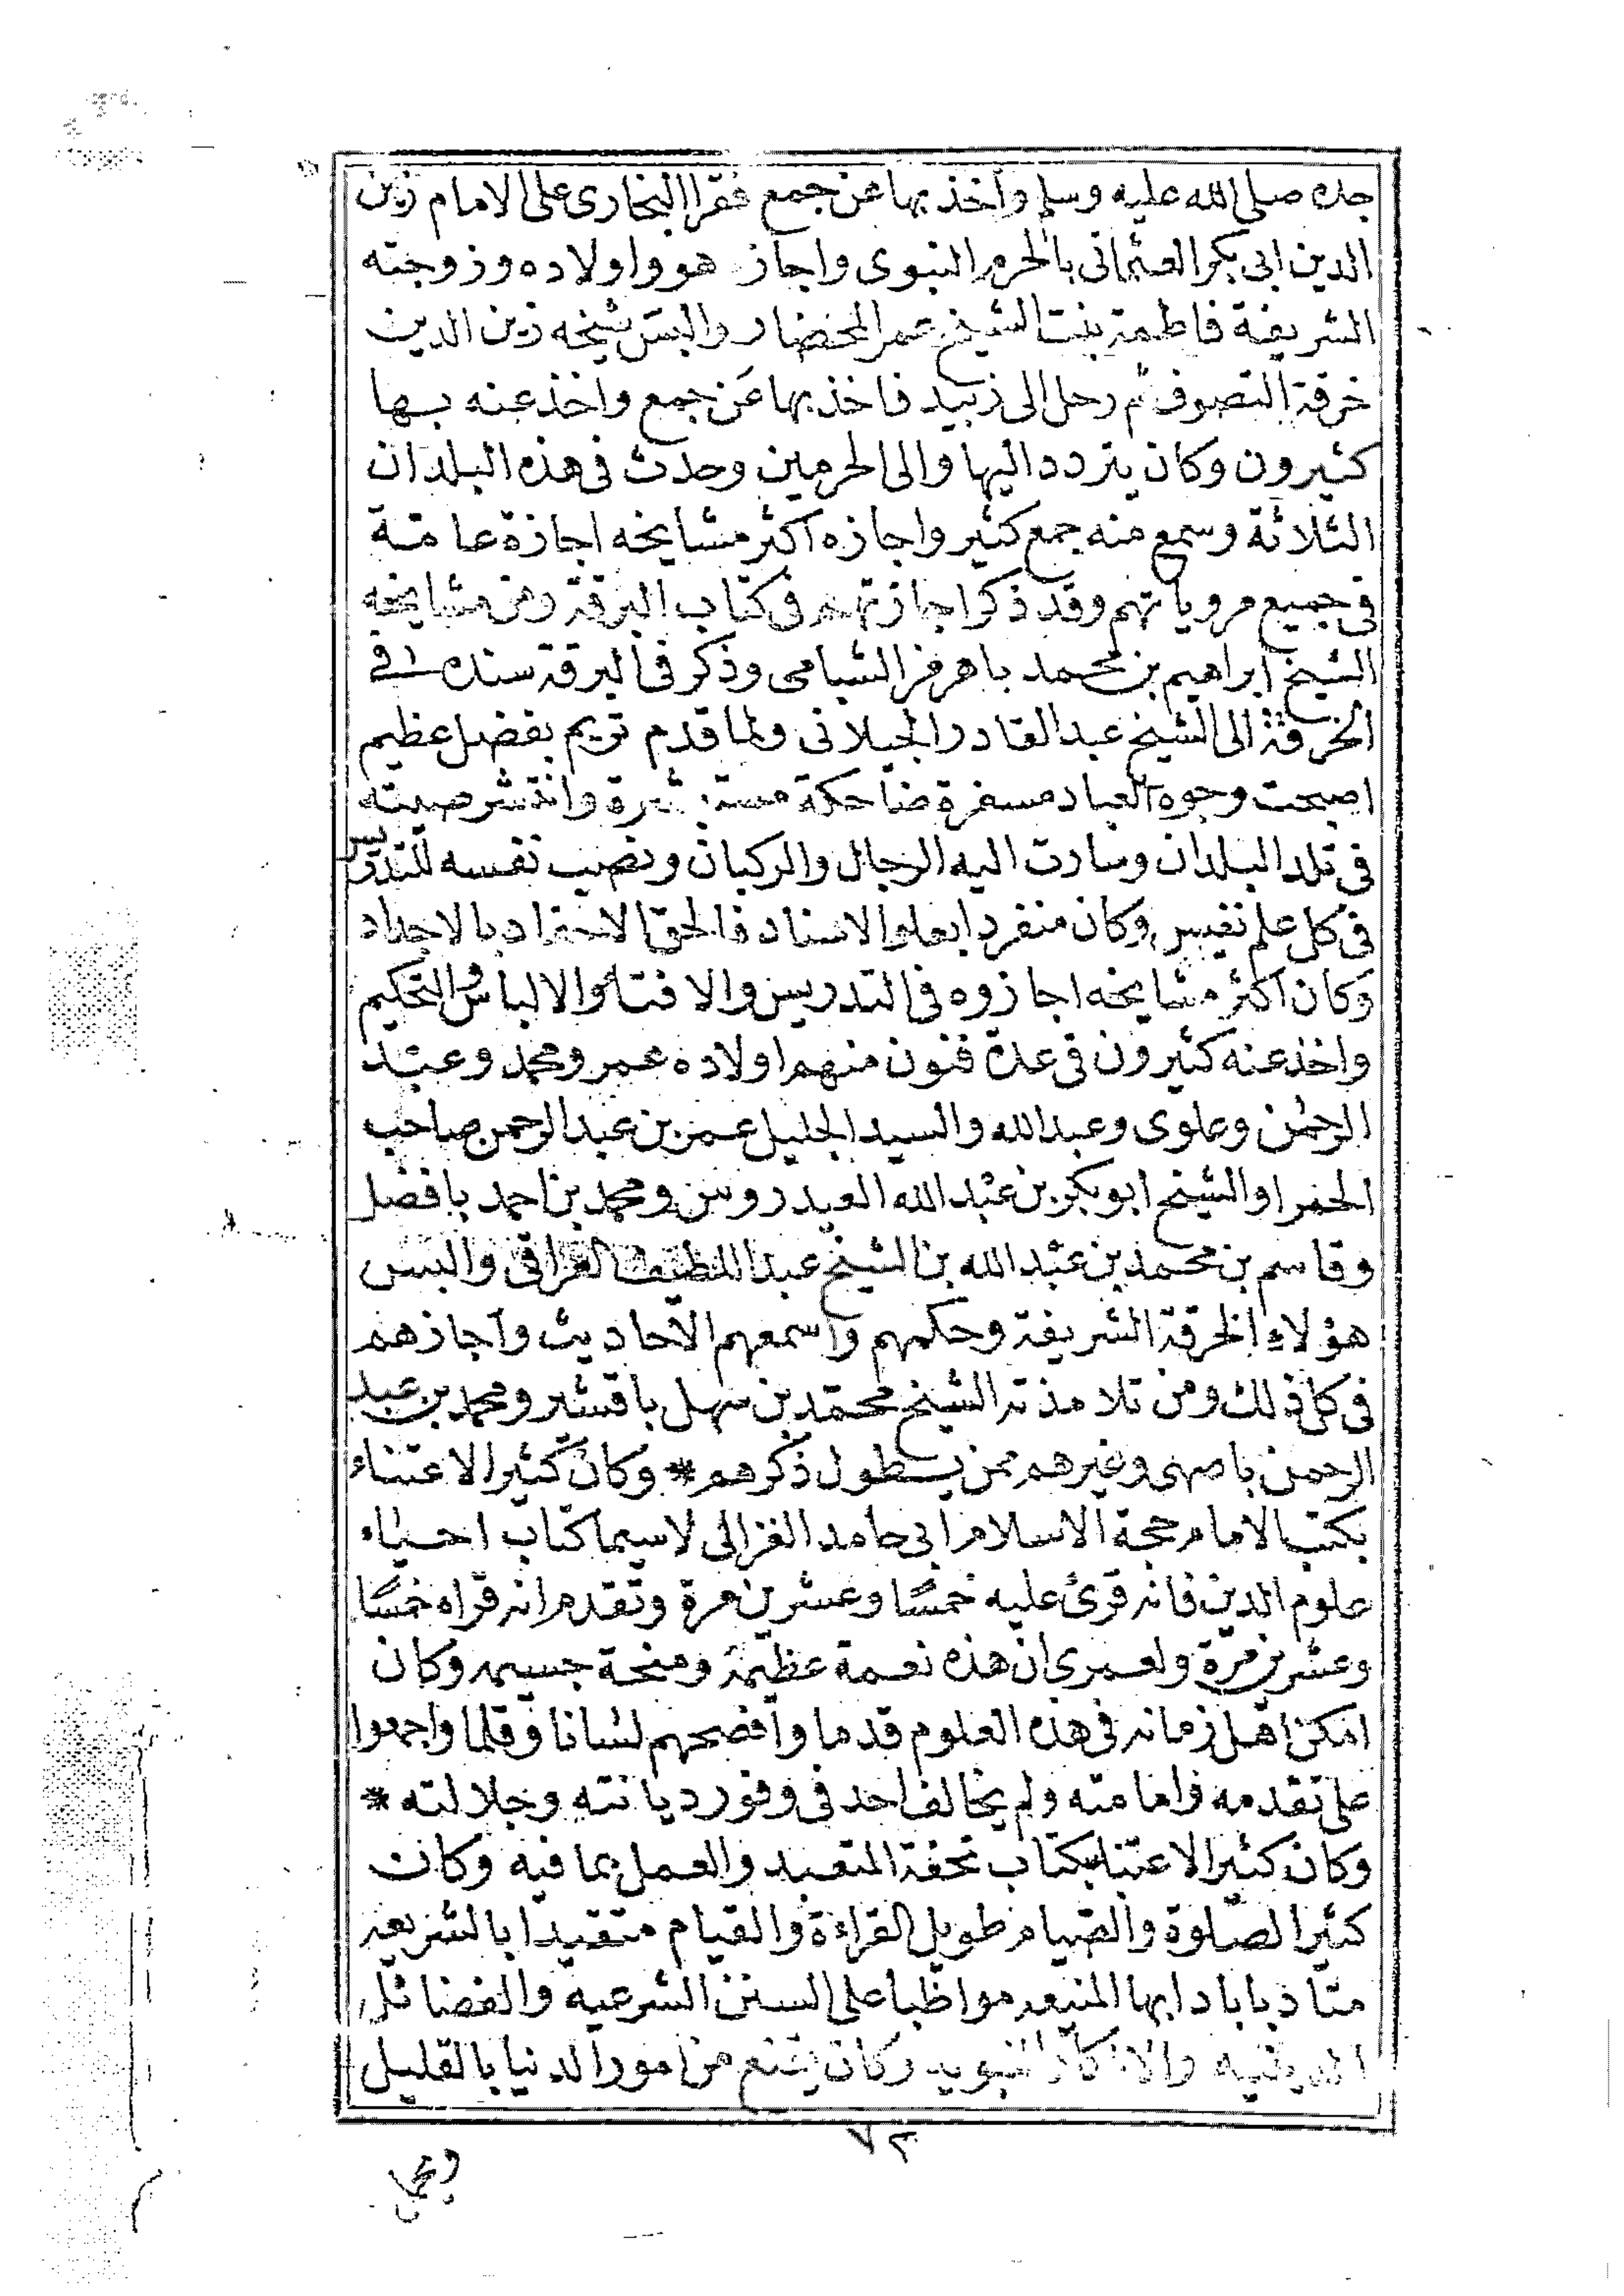 جده صلى الله عليه وسلم وأخذ بها عن جمع فقرا البخارى على الامام زين
الدين ابى بكر العثمانى بالحرم النبوى واجاز هو واولاده وزوجته
الشريفة فاطمة بنت الشيخ عمر المحضار والبس شيخه زين الدين
خرقة التصوف ثم رحل الى زبيد فاخذ بها عن جمع واخذ عنه بها
كثيرون وكان يتردد اليها والى الحرمين وحدث فى هذه البلدان
الثلاثة وسمع منه جمع كثير واجازه اكثر مشايخه اجازة عامة
فى جميع مروياتهم وقد ذكر اجازتهم فى كتاب البرقة ومن مشايخه
الشيخ ابراهيم بن محمد باهرمز الشبامى وذكر فى البرقة سنده فى
الخرقة الى الشيخ عبد القادر الجيلانى ولما قدم تريم بفضل عظيم
اصبحت وجوه العباد مسفرة ضاحكة مستبشرة وانتشر صيته
فى تلد البلدان وسارت اليه الرجال والركبان ونصب نفسه للتدريس
فى كل علم نفيس وكان منفردا بعلو الاسناد فالحق الاحفاد بالاجداد
وكان اكثر مشايخه اجازوه فى التدريس والافتا والالباس والتحكيم
واخذ عنه كثيرون فى عدة فنون منهم اولاده عمر ومحمد وعبد
الرحمن وعلوى وعبد الله والسيد الجليل عمر بن عبد الرحمن صاحب
الحمرا والشيخ ابو بكر بن عبد الله العيدروس ومحمد بن احمد بافضل
وقاسم بن محمد بن عبد الله بن الشيخ عبد اللطيف العراقى والبس
هؤلاء الخرقة الشريفة وحكمهم واسمعهم الاحاديث واجازهم
فى كل ذلك ومن تلامذته الشيخ محمد بن سهل باقشير ومحمد بن عبد
الرحمن باصهى وغيرهم ممن يطول ذكرهم * وكان كثير الاعتناء
بكتب الامام حجة الاسلام ابى حامد الغزالى لاسيما كتاب احياء
علوم الدين فانه قرئ عليه خمسًا وعشرين مرة وتقدم انه قراه خمسًا
وعشرين مرة ولعمرى ان هذه نعمة عظيمة ومنحة جسيمه وكان
امكن اهل زمانه فى هذه العلوم قدما وافصحهم لسانا وقلما واجمعوا
على تقدمه وامامته ولم يخالف احد فى وفور ديانته وجلالته *
وكان كثير الاعتنا بكتاب تحفة المتعبد والعمل بما فيه وكان
كثير الصلوة والصيام طويل القراءة والقيام متقيدا بالشريعه
متادبا بادابها المنيعه مواظبا على السنن الشرعيه والفضائل
والاذكار النبويه وكان يقنع من امور الدنيا بالقليل
٧٣